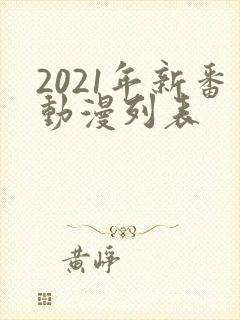 2021年新番
動漫列表
黄崢